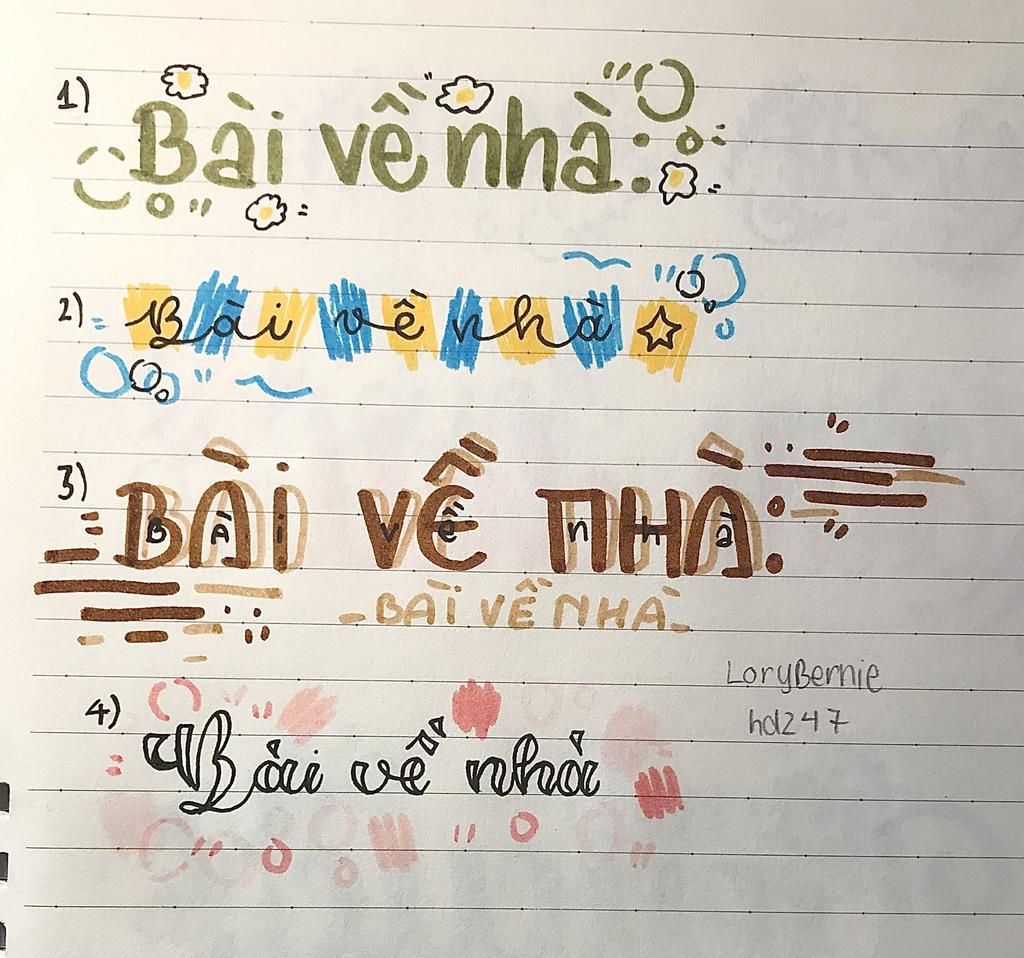 1) Bài về nhà:
2) Bài về nhà
3) BÀi VỀ NHÀ:
B À i v ề n h à
- BÀI VỀ NHÀ -
LoryBernie
hd247
4) Bài về nhà